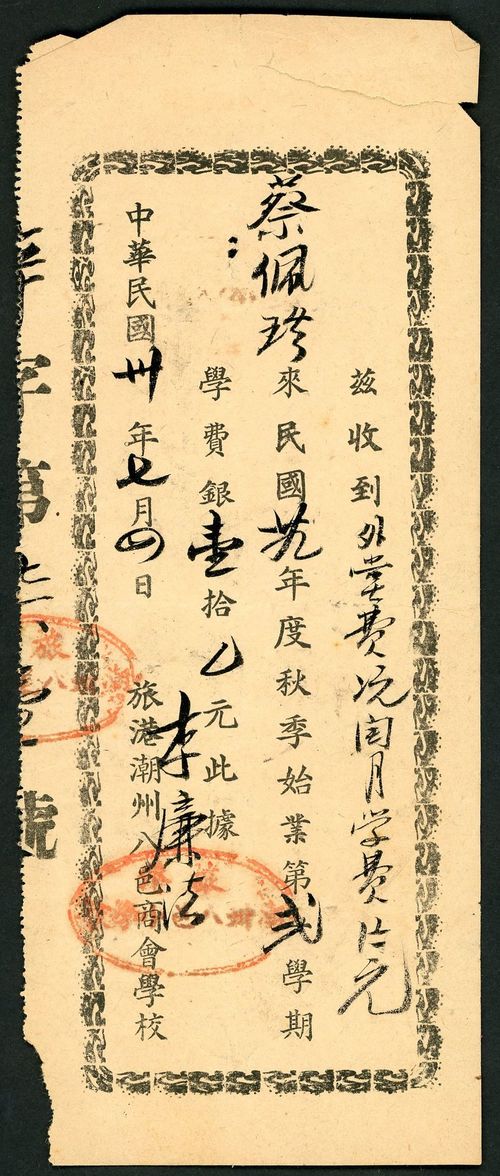 茲收到外堂費 閏月学費 元
蔡佩 來民國廿九年度秋季始業第弍學期
學費銀壹拾 元此據
李廉洁
中華民國卅年七月四日 旅港潮州八邑商會學校
字第 號